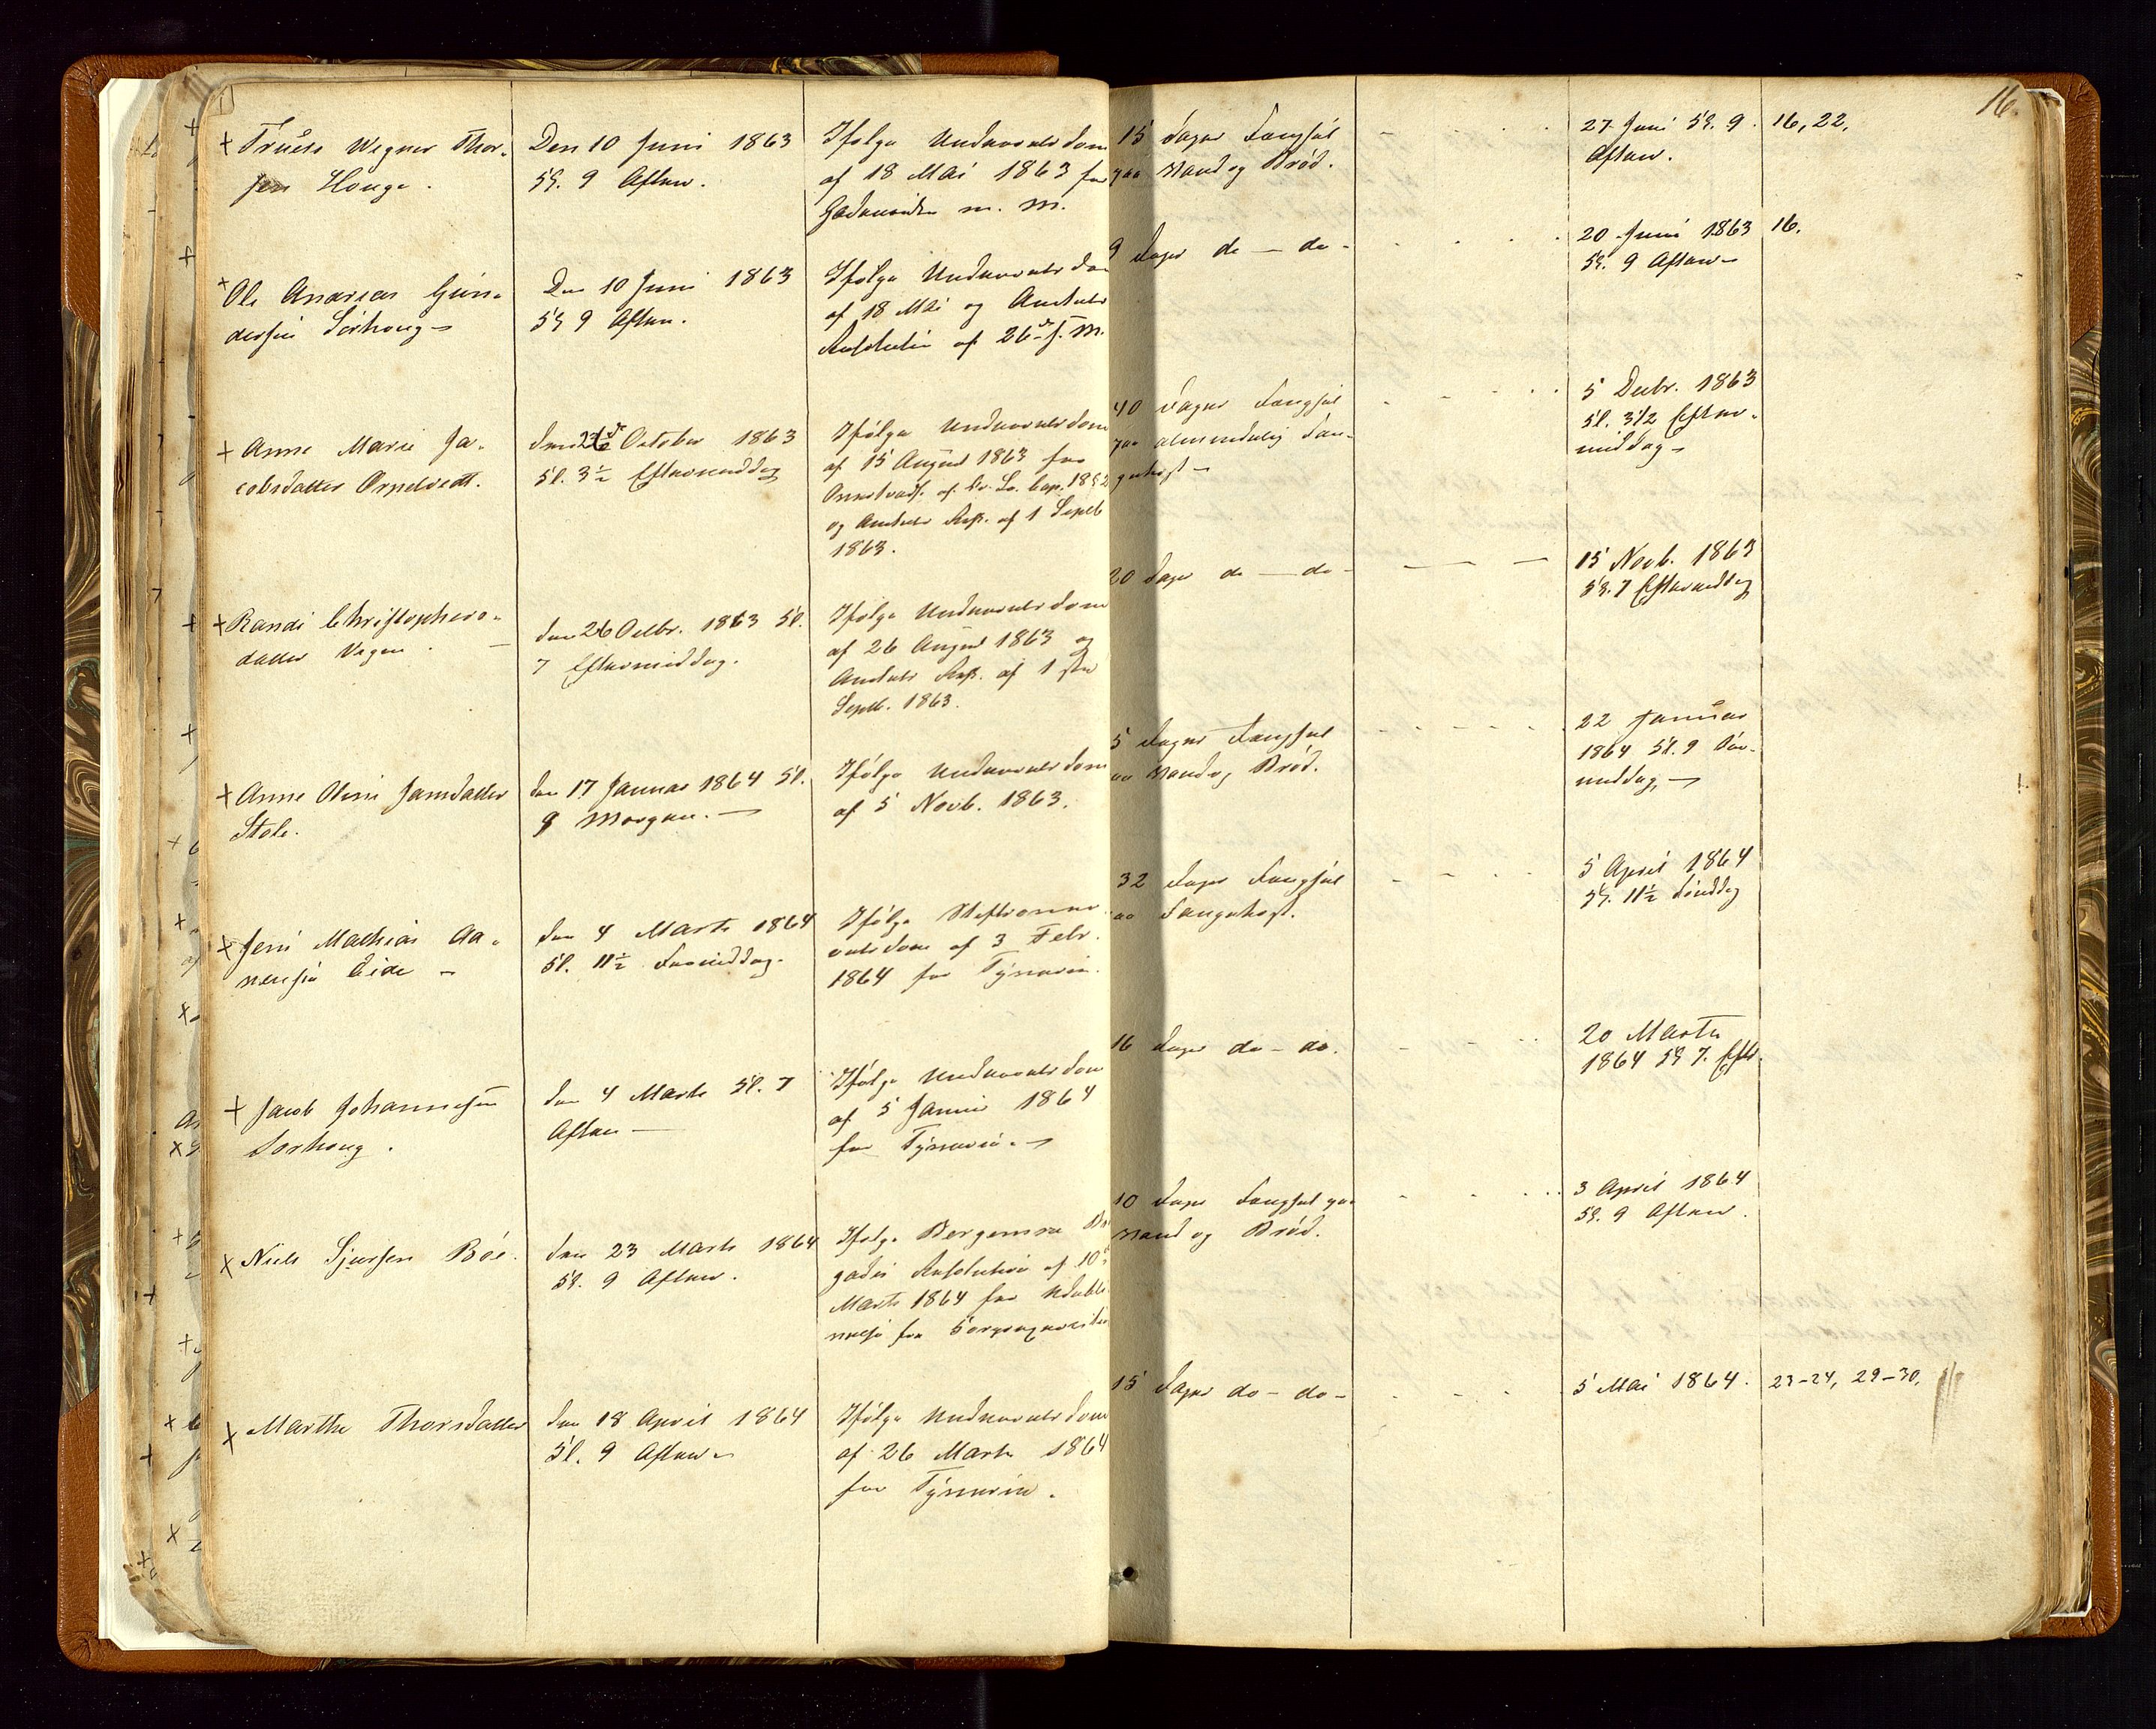 16.
+ Truels Wegner Thor-
sen Houge.
Den 10 Juni 1863
Kl. 9 Aften.
Ifølge Underretsdom
af 18 Mai 1863 for
m. M.
15 Dages Fængsel
paa Vand og Brød.
27 Juni Kl. 9
Aften.
16, 22.
+ Ole Andreas Gun-
dersen Sörhoug
Den 10 Juni 1863
Kl 9 Aften.
Ifølge Underretsdom
af 18 Mai og Amtets
Resolution af 26de s. M.
9 Dages do - do -
20 Juni 1863
Kl. 9 Aften
16.
+ Anne Marie Ja-
cobsdatter Orpetvedt.
den 26de October 1863
Kl. 3½ Eftermiddag
Ifølge Underretsdom
af 15 August 1863 for
af Cap. 18 § 2
og Amtets Res. af 1 Septb
1863.
40 Dages Fængsel
paa almindelig Fan-
gekost
5 Decbr. 1863
Kl. 3½ Efter-
middag
+ Randi Christophers-
datter Vegen
den 26 Octbr. 1863 Kl.
7 Eftermiddag.
Ifølge Underretsdom
af 26 August 1863 og
Amtets Res. af 1ste
Septb. 1863.
20 Dages do - do -
15 Novb. 1863
Kl. 7 Eftermiddag
+ Anne Oline Jansdatter
Stole.
den 17 Januar 1864 Kl.
9 Morgen.
Ifølge Underretsdom
af 5 Novb. 1863.
5 Dages Fængsel
paa Vand og Brød.
22 Januar
1864 Kl. 9 For-
middag
+ Jens Mathias Aa-
nensen Eide
den 4 Marts 1864
Kl. 11½ Formiddag.
Ifølge
retsdom af 3 Febr.
1864 for Tyveri.
32 Dages Fængsel
paa Fangekost.
5 April 1864
Kl. 11½ Formddg
+ Jacob Johannesen
Sorhoug.
den 4 Marts Kl. 7
Aften
Ifølge Underretsdom
af 5 Januar 1864
for Tyveri.
16 Dages do - do.
20 Marts
1864 Kl 7. Eftr.
+ Niels Sjursen Böe.
den 23 Marts 1864
Kl. 9 Aften.
Ifølge Bergenske Bri-
gades Resolution af 10de
Marts 1864 for Udebli-
velse fra
10 Dages Fængsel paa
Vand og Brød.
3 April 1864
Kl. 9 Aften.
+ Marthe Thorsdatter
den 18 April 1864
Kl. 9 Aften
Ifølge Underretsdom
af 26 Marts 1864
for Tyveri.
15 Dages do - do -
5 Mai 1864.
23-24, 29-30.